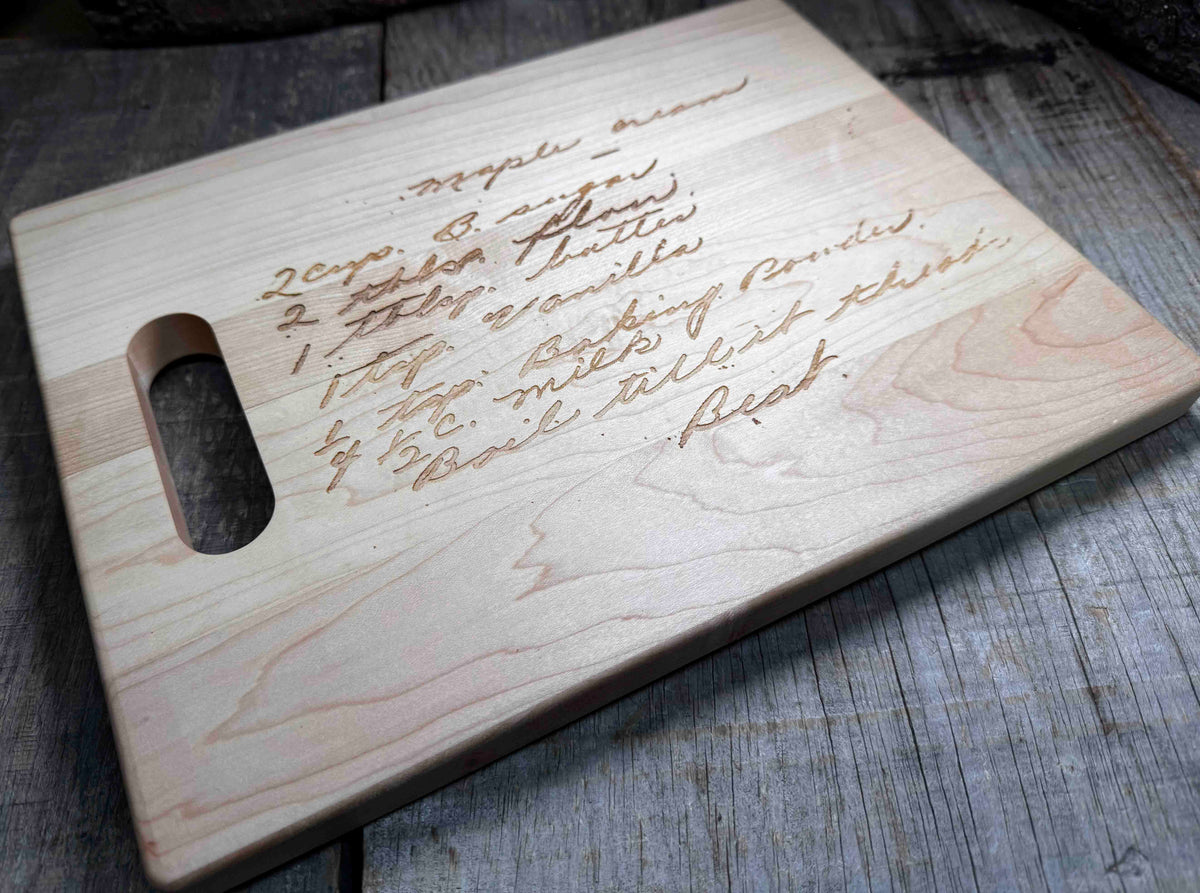 Maple cream
2 cups. B. sugar
2 tblsp. flour.
1 tblsp. butter
1 tsp. vanilla
1/4 tsp. Baking Powder.
1/2 c. milk
Boil till it threads.
Beat.